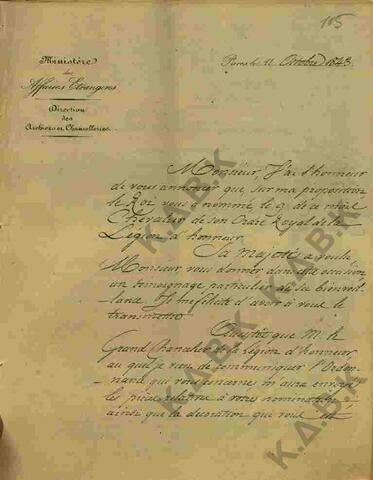 105
Ministère
des
Affaires Etrangères
Direction
des
Archives et Chancelleries.
Paris le 11 Octobre 1848
Monsieur, J'ai l'honneur
de vous annoncer que, sur ma proposition
le Roi vous a nommé, le 9 de ce mois,
Chevalier de son Ordre Royal de la
Légion d'honneur.
Sa Majesté a voulu,
Monsieur, vous donner dans cette occasion
un témoignage particulier de sa bienveil-
lance. Je me félicite d'avoir à vous le
transmettre.
Aussitôt que M. le
Grand Chancelier de la Légion d'honneur
au quel je viens de communiquer l'Ordon-
nance qui vous concerne m'aura envoyé
les pièces relatives à votre nomination
ainsi que la décoration qui vous est
Κ.Δ.Β.Κ
Κ.Δ.Β.Κ
Κ.Δ.Β.Κ
Κ.Δ.Β.Κ